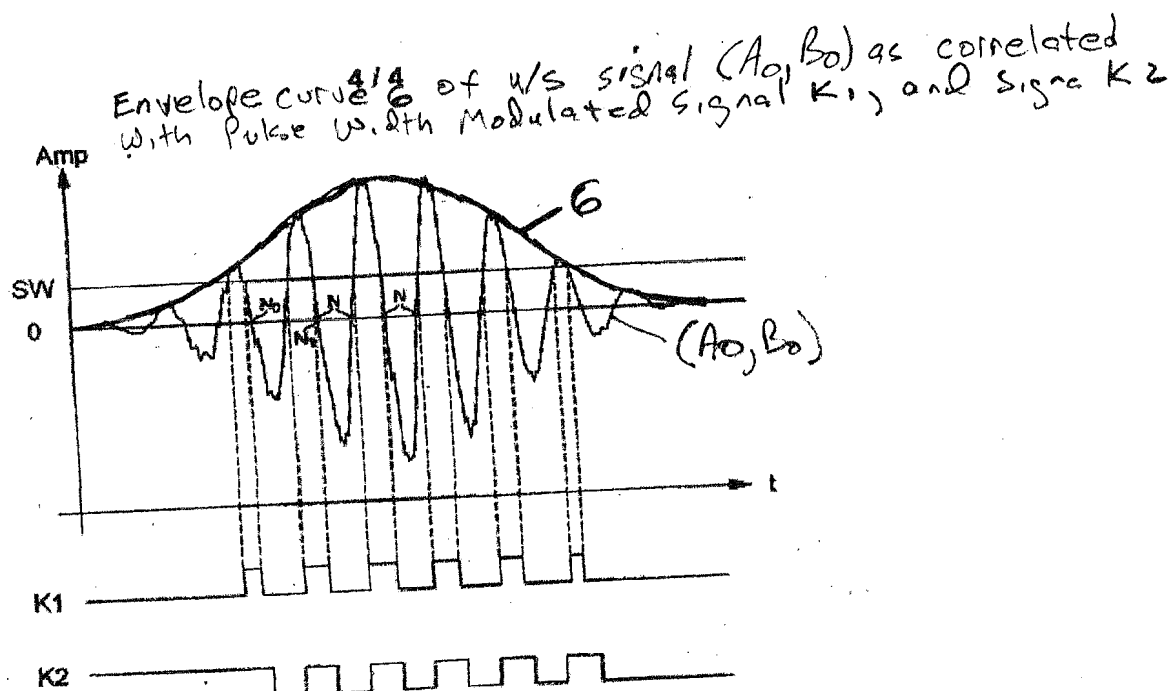 4/4
Envelope curve 6 of u/s signal (Ao, Bo) as correlated
with Pulse Width Modulated Signal K1, and Signa K2
Amp
6
SW
No N N
0
N1
(Ao, Bo)
t
K1
K2